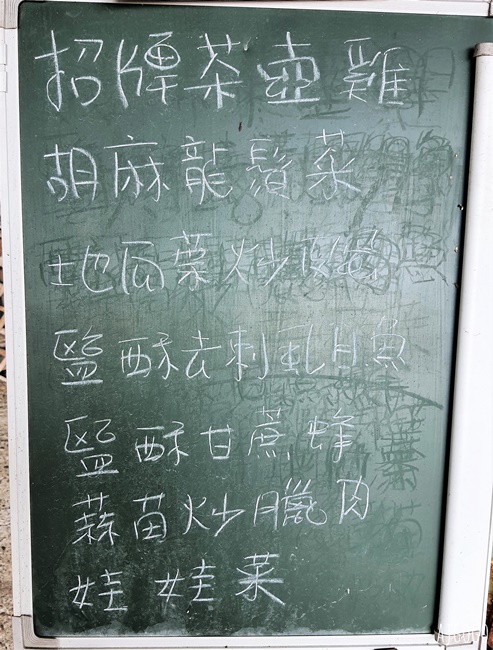 招牌茶壺雞
胡麻龍鬚菜
地瓜葉炒
鹽酥去刺虱目魚
鹽酥甘蔗蜂
蒜苗炒臘肉
娃娃菜